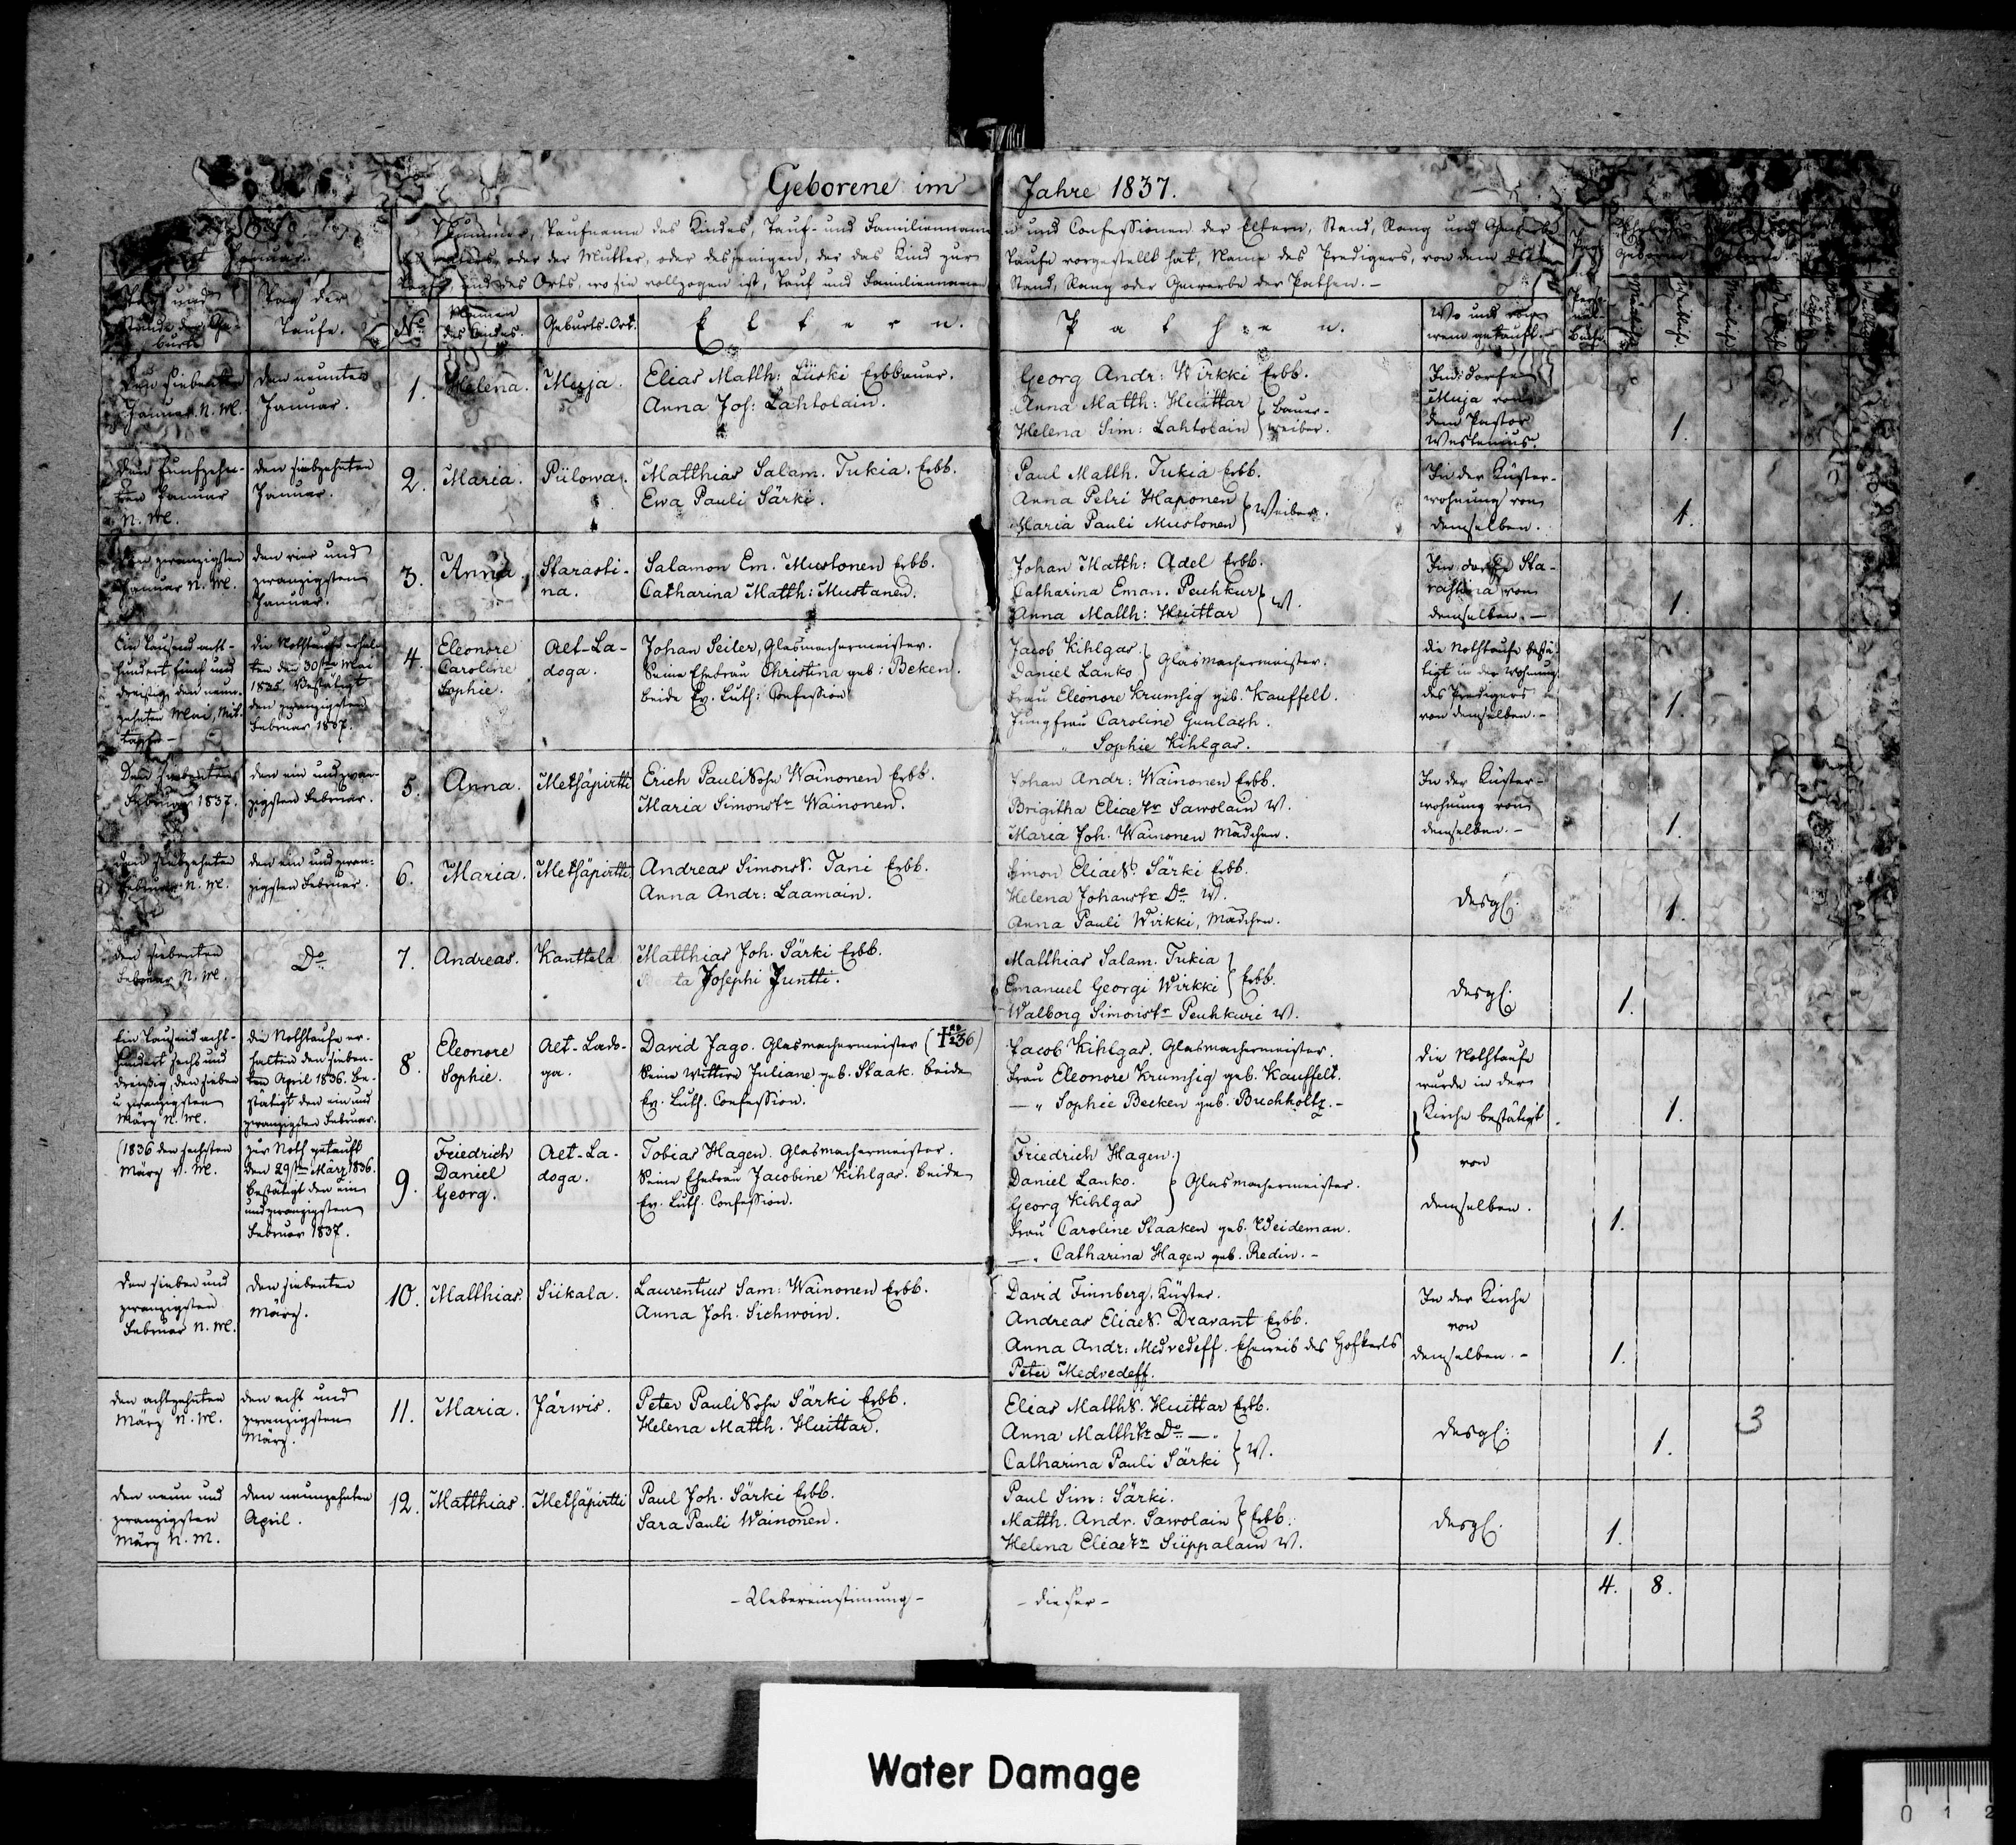 Geborene im Jahre 1837.
Nummer, Taufname des Kindes, Tauf- und Familienname und Confessionen der Eltern, Stand, Rang und Gewerbe
oder der Mutter, oder desjenigen, der das Kind zur Taufe vorgestellt hat, Name des Predigers, von dem
und des Orts, wo sie vollzogen ist, Tauf und Familienname Stand, Rang oder Gewerbe der Pathen. -
Januar.
Tag und
Stunde der Ge-
burt
Tag der
Taufe.
No
Namen
des Kindes.
Geburts-Ort.
Eltern.
Pathen.
Wo und von
wem getauft.
Den siebenten
Januar N. M.
Den neunten
Januar.
1.
Helena.
Muja.
Elias Matth: Liiski Erbbauer.
Anna Joh: Lahtolain.
Georg Andr: Wirkki Erbb.
Anna Matth: Huittar
Helena Sim: Lahtolain
} Bauer-
weiber.
Im Dorfe
Muja von
dem Pastor
Westenius.
1.
Den funfzehn-
ten Januar
N. M.
Den siebzehnten
Januar.
2.
Maria.
Piilowa.
Matthias Salam. Tukia. Erbb.
Ewa Pauli Särki.
Paul Matth. Tukia Erbb.
Anna Petri Haponen
Maria Pauli Mustonen
} Weiber.
In der Küster-
wohnung von
demselben.
1.
Den zwanzigsten
Januar N. M.
Den vier und
zwanzigsten
Januar.
3.
Anna
Starasti-
na.
Salamon Em. Mustonen Erbb.
Catharina Matth: Mustanen.
Johan Matth: Adel Erbb.
Catharina Eman. Peuhkur
Anna Matth: Huittar
} W.
Im Dorfe Sta-
rastina von
demselben. -
1.
Ein tausend acht-
hundert fünf und
dreisig, den neun-
zehnten Mai, Mit-
tags -
Die Nothtaufe erhal-
ten den 30sten Mai
1835. Bestätigt
den zwanzigsten
Februar 1837.
4.
Eleonore
Caroline
Sophie.
Alt-La-
doga.
Johan Seiler, Glasmachermeister.
Seine Ehefrau Christina geb: Beken.
beide Ev. Luth: Confession
Jacob Kihlgas
Daniel Lanko
} Glasmachermeister.
Frau Eleonore Krumsig geb. Kauffelt.
Jungfrau Caroline Gunlach.
" Sophie Kihlgas.
Die Nothtaufe bestä-
tigt in der Wohnung
des Predigers
von demselben. -
1.
Den siebenten
Februar 1837.
Den ein und zwan-
zigsten Februar.
5.
Anna.
Metsäpirtti
Erich Pauli Sohn Wainonen Erbb.
Maria Simonstr Wainonen.
Johan Andr: Wainonen Erbb.
Brigitha Eliaetr Sawolain W.
Maria Joh. Wainonen Mädchen.
In der Küster-
wohnung von
demselben. -
1.
Den siebzehnten
Februar N. M.
Den ein und zwan-
zigsten Februar.
6.
Maria.
Metsäpirtti
Andreas Simons. Tani Erbb.
Anna Andr: Laamain.
Simon Eliaes. Särki Erbb.
Helena Johanstr Do W.
Anna Pauli Wirkki, Mädchen.
desgl:
1.
Den siebenten
Februar N. M.
Do
7.
Andreas.
Kanttela
Matthias Joh. Särki Erbb.
Beata Josephi Juntti.
Matthias Salam. Tukia
Emanuel Georgi Wirkki
} Erbb.
Walborg Simonstr Peuhkuri W.
desgl:
1.
Ein tausend acht-
hundert sechs und
dreissig, den sieben
u zwanzigsten
März N. M.
Die Nothtaufe er-
halten den sieben-
ten April 1836. Be-
stätigt den ein und
zwanzigsten Februar.
8.
Eleonore
Sophie.
Alt-Lado-
ga.
David Jago. Glasmachermeister
Seine Wittwe Juliane geb. Staak. beide
Ev. Luth. Confession.
Jacob Kihlgas. Glasmachermeister.
Frau Eleonore Krumsig geb. Kauffelt.
— " Sophie Becken geb. Buchholtz. -
Die Nothtaufe
wurde in der
Kirche bestätigt
1.
(1836 den sechsten
März N. M.
Zur Noth getauft
den 29sten März 1836.
Bestätigt den ein
und zwanzigsten
Februar 1837.
9.
Friedrich
Daniel
Georg.
Alt-La-
doga.
Tobias Hagen. Glasmachermeister.
Seine Ehefrau Jacobine Kihlgas. beide
Ev. Luth. Confession.
Friedrich Hagen.
Daniel Lanko.
Georg Kihlgas
} Glasmachermeister.
Frau Caroline Staaken geb. Weideman.
— " Catharina Hagen geb. Redin. -
von
demselben.
1.
Den sieben und
zwanzigsten
Februar N. M.
Den siebenten
März.
10.
Matthias.
Siikala.
Laurentius Sam: Wainonen Erbb.
Anna Joh. Sichwoin.
David Finnberg, Küster.
Andreas Eliaes. Dravant Erbb.
Anna Andr: Medvedeff. Eheweib des Hofkerls
Peter Medvedeff.
In der Kirche
von
demselben. -
1.
Den achtzehnten
März N. M.
Den acht und
zwanzigsten
März.
11.
Maria.
Järwis.
Peter Pauli Sohn Särki Erbb.
Helena Matth. Huittar.
Elias Matths. Huittar Erbb.
Anna Matthtr Do — "
Catharina Pauli Särki
} W.
desgl:
1.
3
Den neun und
zwanzigsten
März N. M.
Den neunzehnten
April.
12.
Matthias.
Metsäpirtti
Paul Joh. Särki Erbb.
Sara Pauli Wainonen.
Paul Sim: Särki.
Matth. Andr. Sawolain
} Erbb.
Helena Eliaetr Siippalain W.
desgl.
1.
- Uebereinstimung -
- dieser -
4. 8.
Water Damage
0 1 2